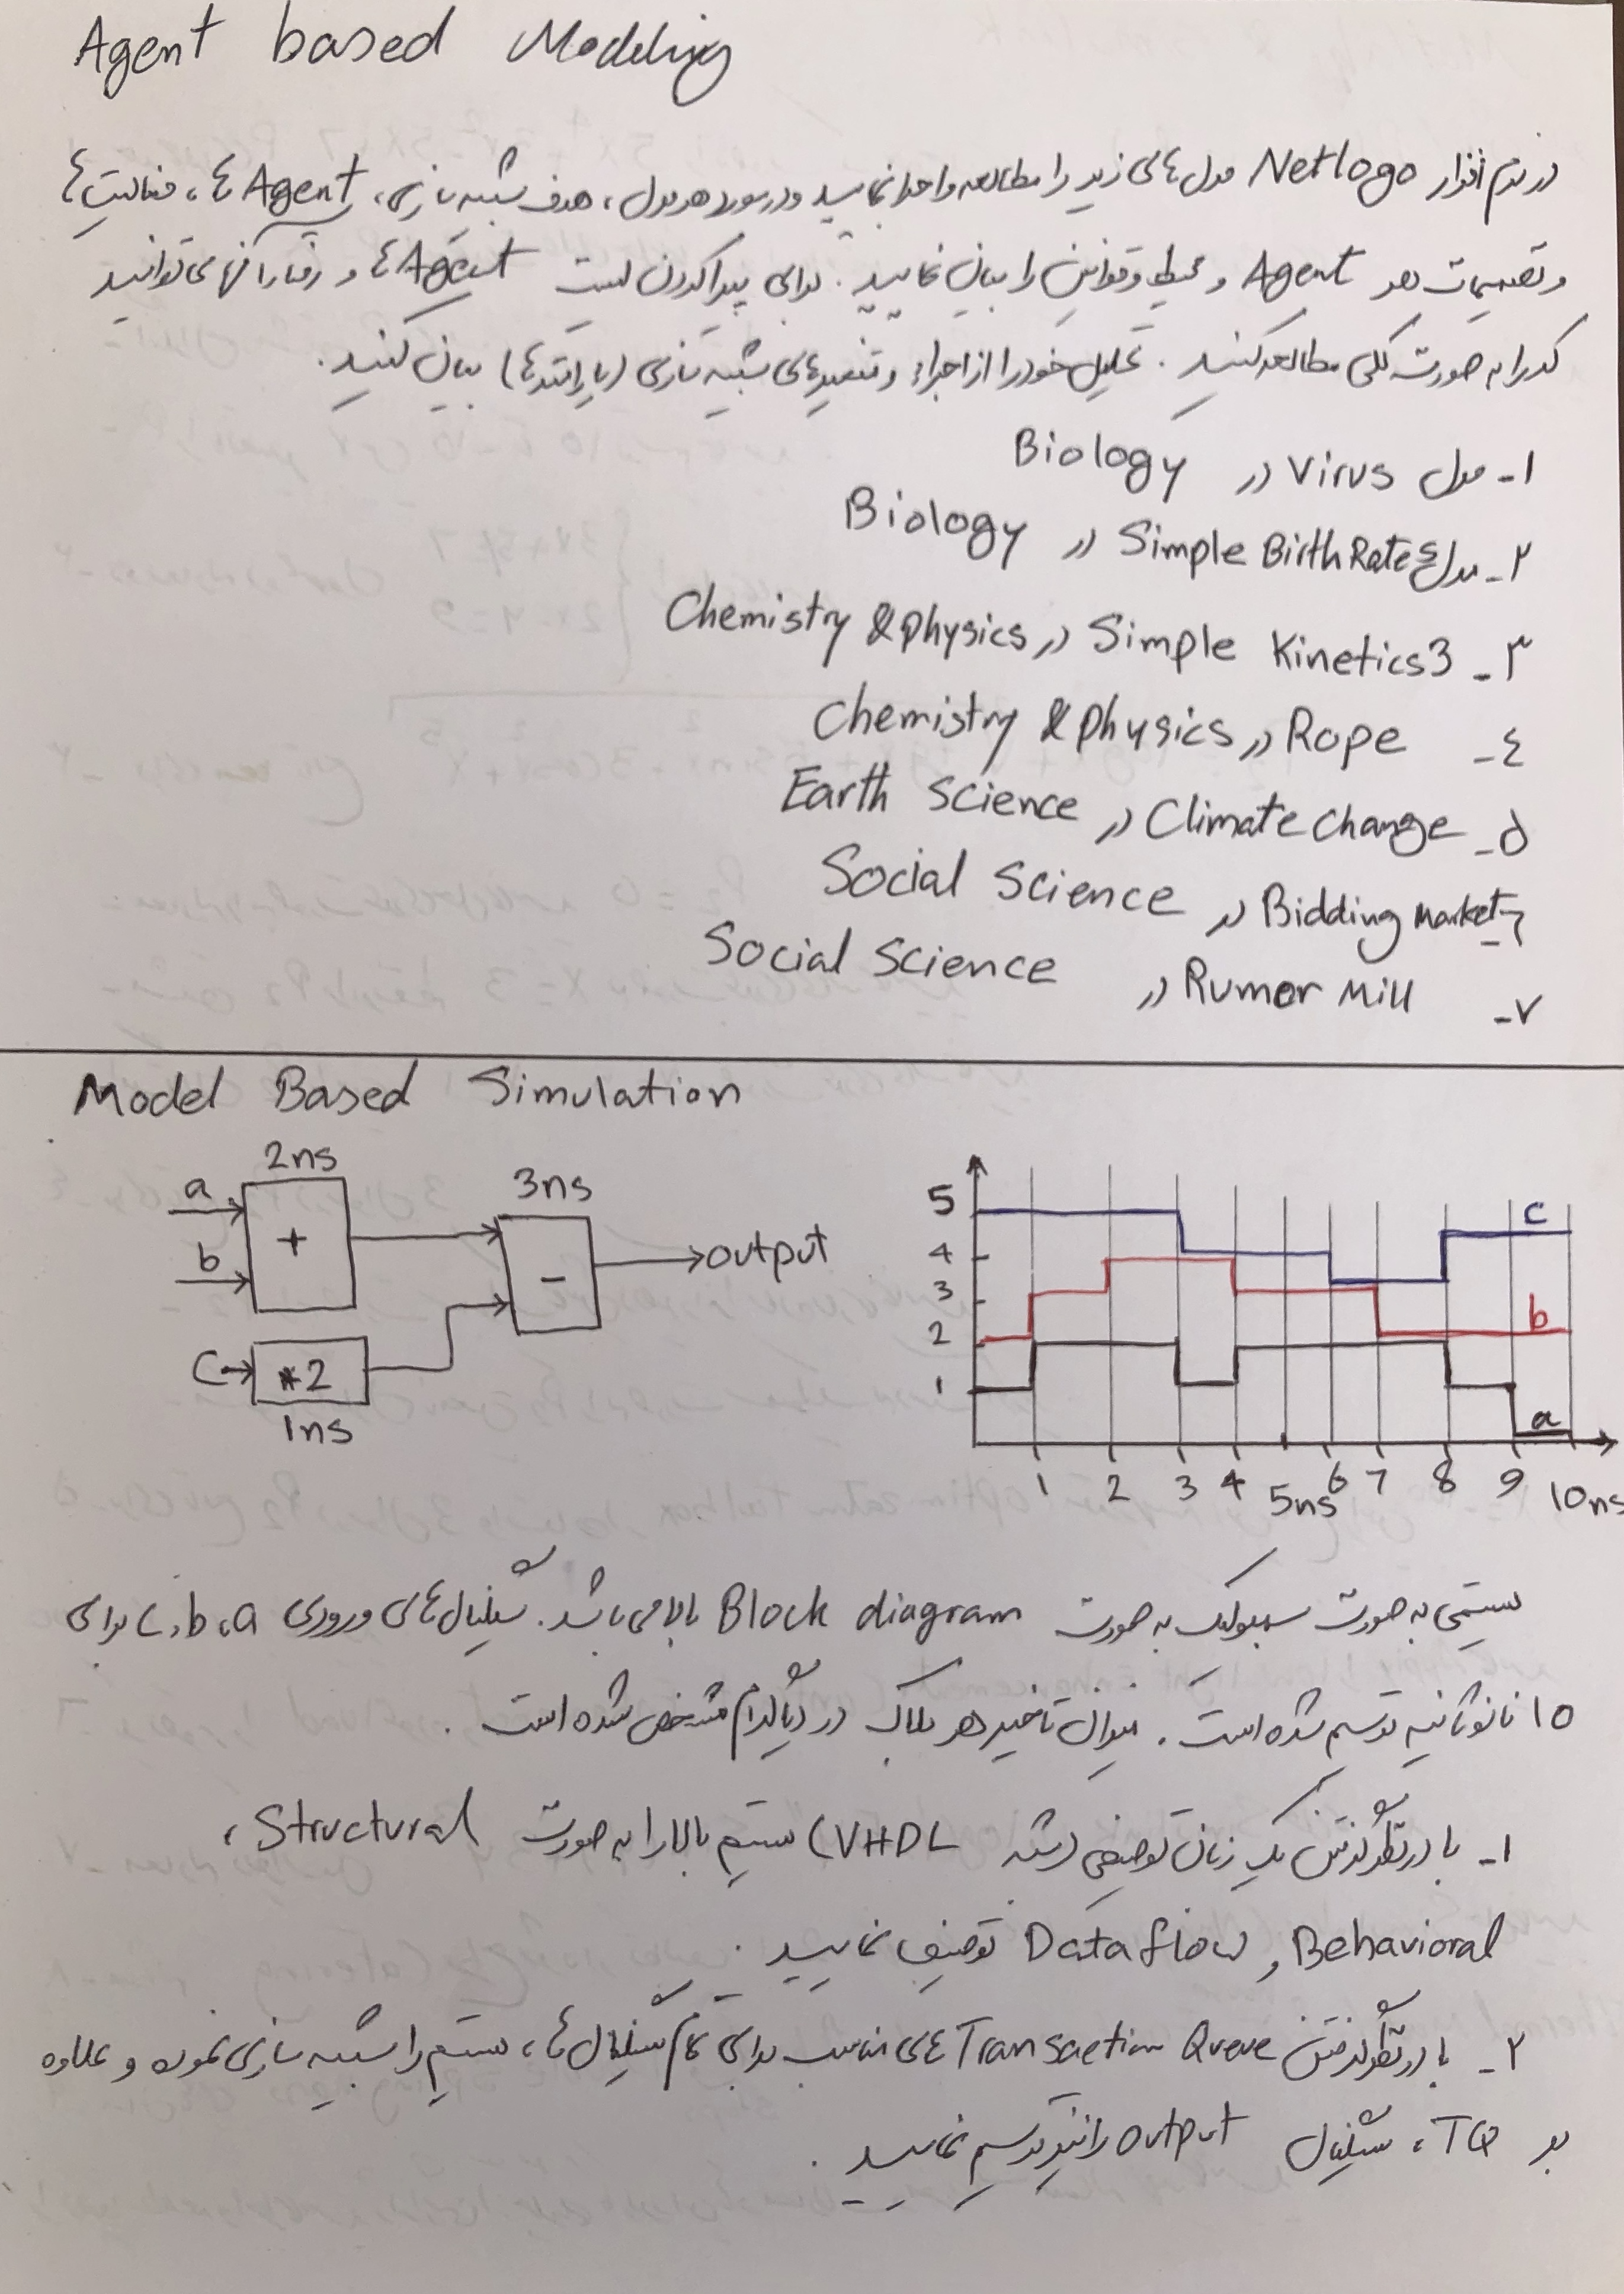 Agent based Modeling
در نرم افزار Netlogo مدل های زیر را مطالعه و اجرا نمایید و در مورد هر مدل، هدف شبیه سازی، Agent ها، فعالیت ها
و تصمیمات هر Agent و محیط و قوانین را بیان نمایید. برای پیدا کردن لیست Agent ها و رفتار آنها می توانید
کد را به صورت کلی مطالعه کنید. تحلیل خود را از اجراء و متغیرهای شبیه سازی (پارامترها) بیان کنید.
۱- مدل Virus در Biology
۲- مدل Simple Birth Rates در Biology
۳- Simple Kinetics3 در Chemistry & Physics
٤- Rope در Chemistry & Physics
۵- Climate Change در Earth Science
۶- Bidding Market در Social Science
۷- Rumor Mill در Social Science
Model Based Simulation
2ns
3ns
a
b
+
-
output
C
*2
1ns
5
4
3
2
1
c
b
a
1 2 3 4 5ns 6 7 8 9 10ns
سیستمی به صورت سمبولیک به صورت Block diagram بالا می باشد. سیگنال های ورودی a، b، c برای
10 نانو ثانیه ترسیم شده است. میزان تاخیر هر بلاک در دیاگرام مشخص شده است.
۱- با در نظر گرفتن یک زبان توصیفی (مثل VHDL) سیستم بالا را به صورت Structural،
Behavioral و Dataflow توصیف نمایید.
۲- با در نظر گرفتن Transaction Queue های مناسب برای تمام سیگنال ها، سیستم را شبیه سازی نموده و علاوه
بر TQ، سیگنال output را نیز ترسیم نمایید.